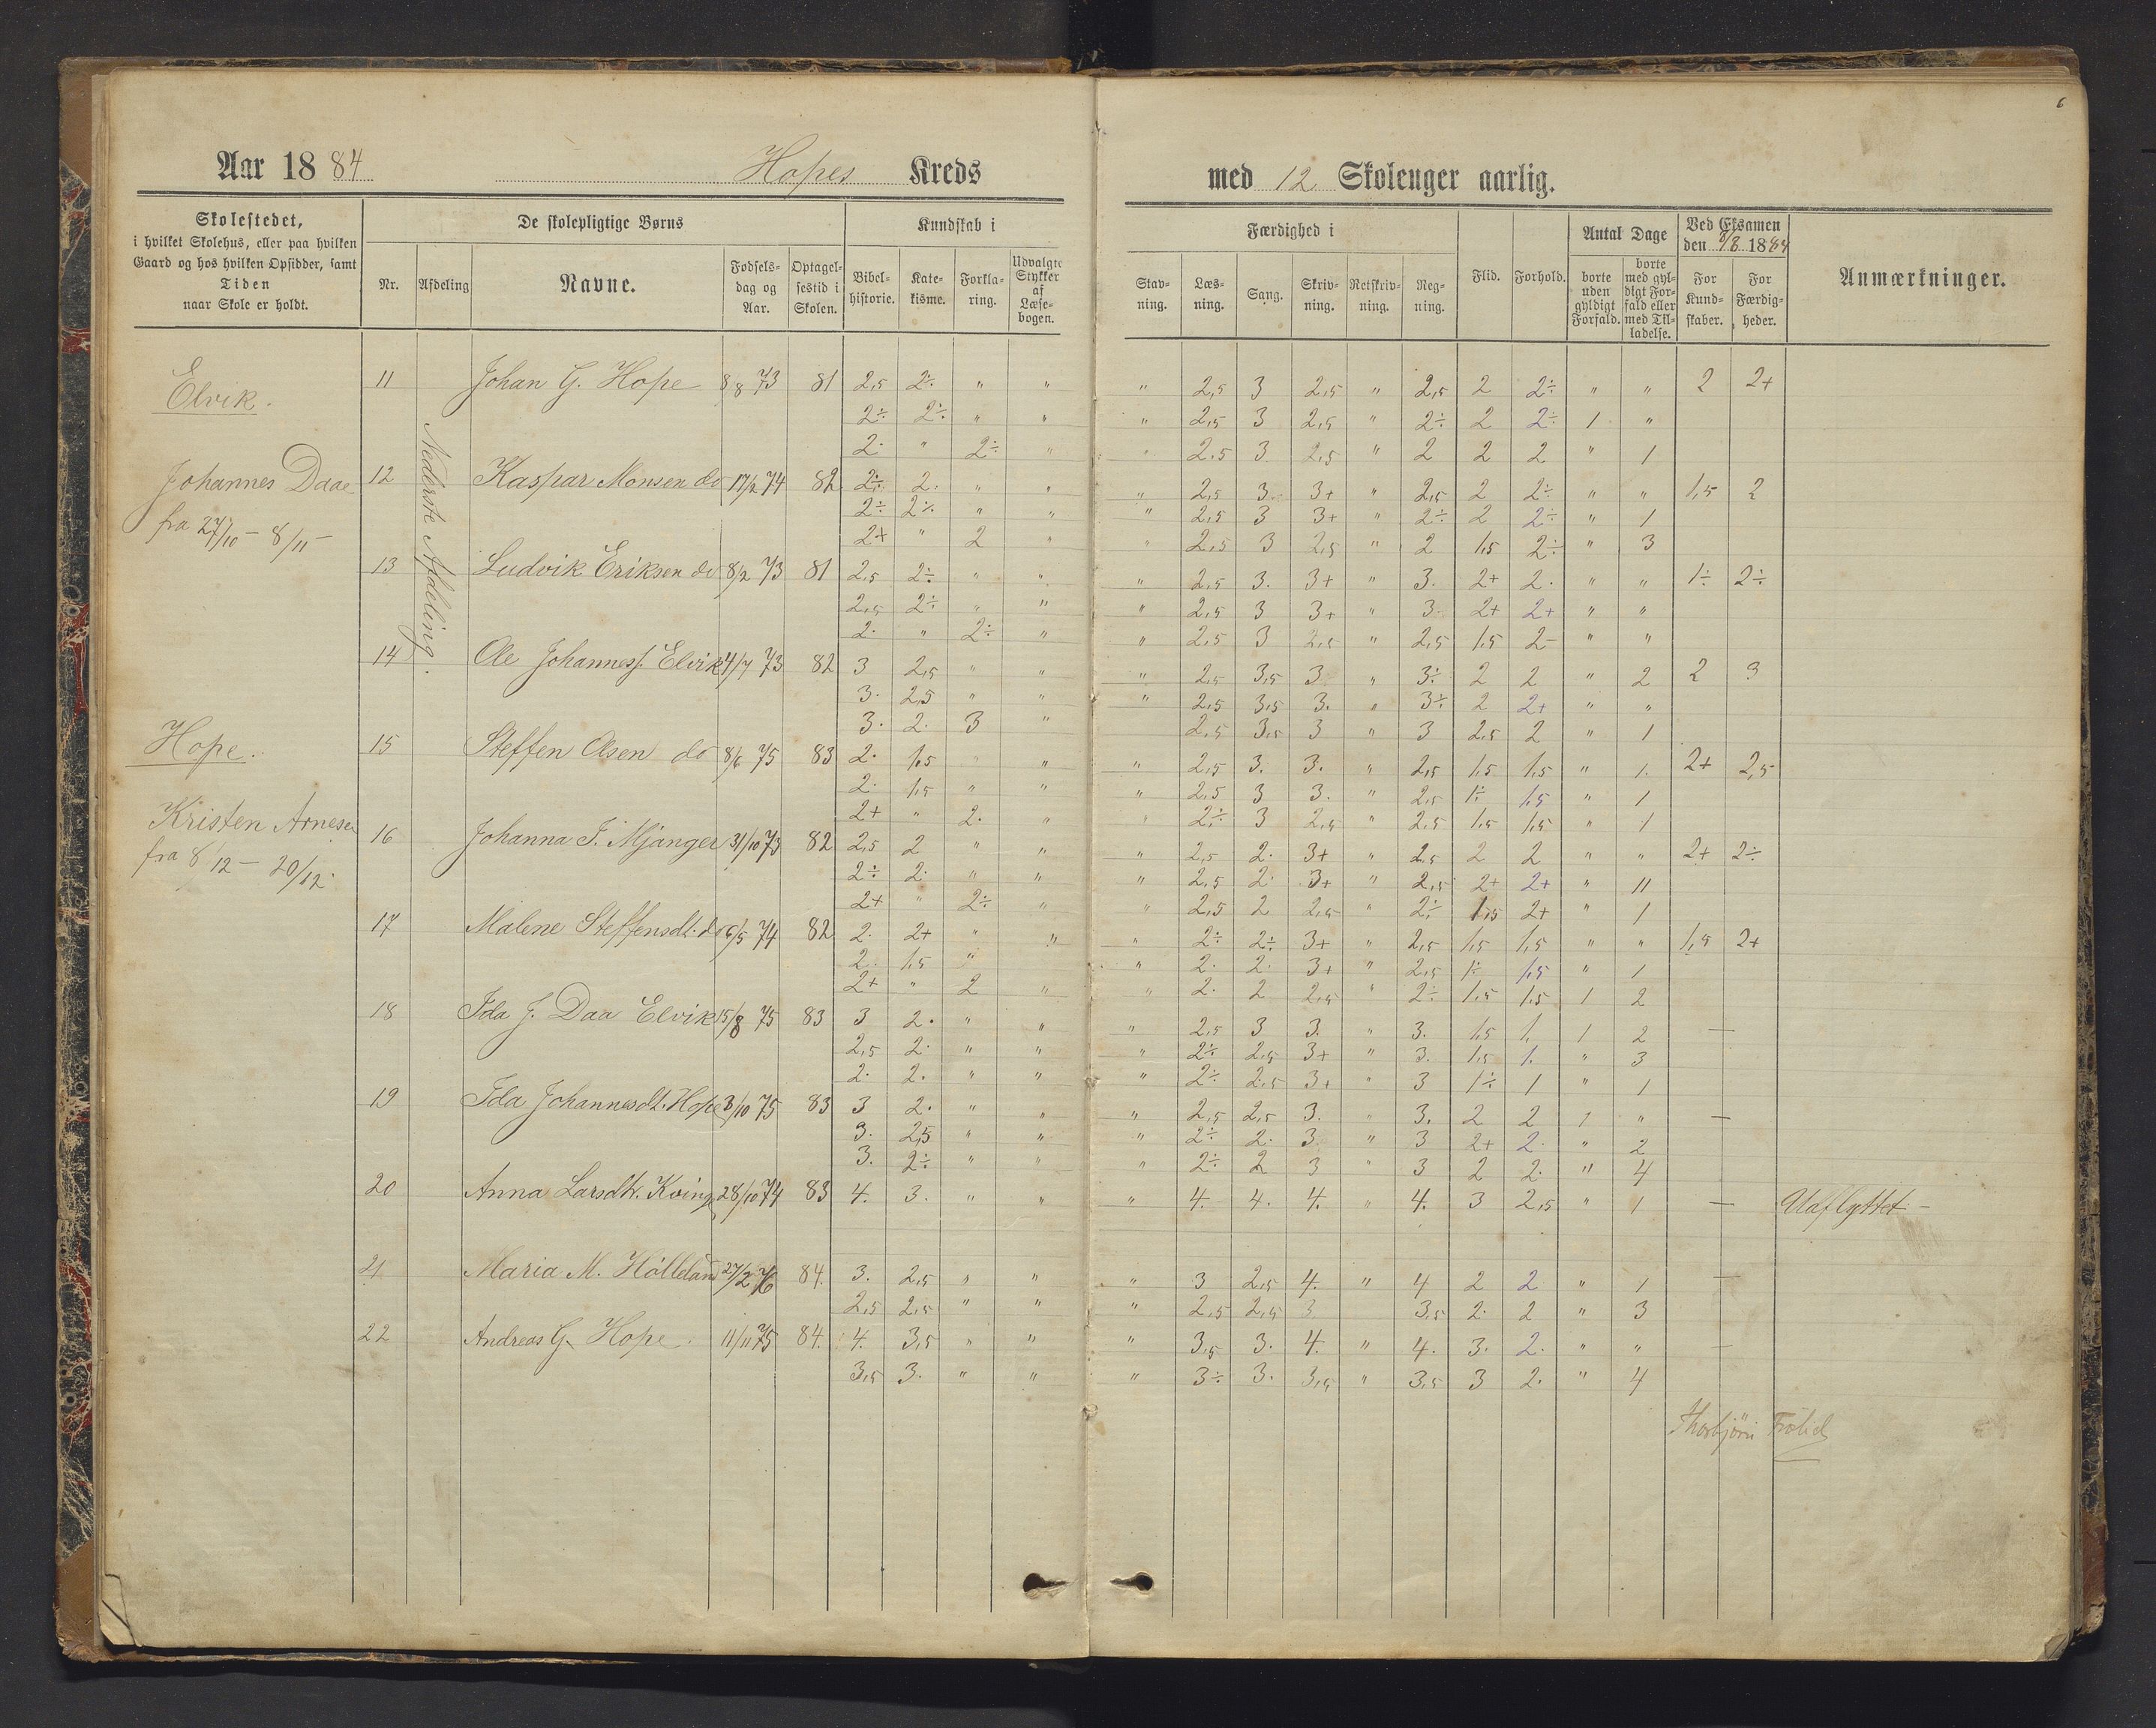 6
Aar 18 84 Hopes Kreds
med 12 Skoleuger aarlig.
Skolestedet,
i hvilket Skolehus, eller paa hvilken
Gaard og hos hvilken Opsidder, samt
Tiden
naar Skole er holdt.
De skolepligtige Børns
Nr. Afdeling Navne. Fødsels-dag og Aar. Optagel-sestid i Skolen.
Kundskab i
Bibel-historie. Kate-kisme. Forkla-ring. Udvalgte Stykker af Læse-bogen.
Færdighed i
Stav-ning. Læs-ning. Sang. Skriv-ning. Retskriv-ning. Reg-ning.
Flid. Forhold.
Antal Dage
borte uden gyldigt Forfald. borte med gyl-digt For-fald eller med Til-ladelse.
Ved Eksamen
den 8/8 1884
For Kund-skaber. For Færdig-heder.
Anmærkninger.
Elvik.
Johannes Daae
fra 27/10 - 8/11 -
Hope.
Kristen Arnesen
fra 8/12 - 20/12
Nederste Afdeling.
11 Johan G. Hope 8/8 73 81 2,5 2÷ " " " 2,5 3 2,5 " 2,5 2 2÷ " " 2 2+
2÷ 2÷ " " " 2,5 3 2,5 " 2÷ 2 2÷ 1 "
2. " 2÷ " " 2.5 3 2,5 " 2 2 2 " 1
12 Kaspar Monsen do 17/2 74 82 2÷ 2. " " " 2,5 3. 3+ " 2,5 2 2÷ " " 1,5 2
2÷ 2÷ " " " 2,5 3 3+ " 2÷ 2 2÷ " 1
2+ " 2 " " 2,5 3 2,5 " 2 1,5 2÷ " 3
13 Ludvik Eriksen do 8/2 73 81 2,5 2÷ " " " 2,5 3. 3+ " 3. 2+ 2. " " 1÷ 2÷
2,5 2÷ " " " 2,5 3 3+ " 3 2+ 2+ " "
2. " 2÷ " " 2,5 3 2,5 " 2,5 1,5 2- " "
14 Ole Johannesf. Elvik 4/7 73 82 3 2,5 " " " 2,5 3,5 3 " 3÷ 2 2 " 2 2 3
3. 2,5 " " " 2,5 3,5 3. " 3÷ 2 2+ " "
3. 2. 3 " 2,5 3,5 3 " 3 2,5 2 " 1
15 Steffen Olsen do 8/6 75 83 2. 1,5 " " " 2,5 3. 3. " 2,5 1,5 1,5 " 1. 2+ 2,5
2. 1,5 " " " 2,5 3 3. " 2,5 1÷ 1,5 " 1
2+ " 2. " " 2÷ 3 2,5 " 2,5 1,5 1,5 " 1
16 Johanna J. Mjanger 31/10 73 82 2,5 2 " " " 2,5 2. 3+ " 2,5 2 2 " " 2+ 2÷
2÷ 2. " " " 2,5 2. 3+ " 2,5 2+ 2+ " 11
2+ " 2÷ " " 2,5 2 2,5 " 2÷ 1,5 2+ " 1
17 Malene Steffensdt. do 6/5 74 82 2. 2+ " " " 2÷ 2÷ 3+ " 2,5 1,5 1,5 " " 1,5 2+
2. 1,5 " " 2. 2. 3+ " 2,5 1÷ 1,5 " 1
2+ " 2 " " 2. 2 2,5 " 2÷ 1,5 1,5 1 2
18 Ida J. Daa Elvik 15/8 75 83 3 2. " " " 2,5 3 3. " 3. 1,5 1, 1 2 —
2,5 2. " " " 2÷ 2,5 3+ " 3. 1,5 1. " 3
2. 2. " " " 2÷ 2,5 3+ " 3 1÷ 1 " 1
19 Ida Johannesdt. Hope 3/10 75 83 3 2. " " " 2,5 2,5 3. " 3. 2 2 1 " —
3. 2,5 " " " 2÷ 2. 3. " 3 2+ 2. " 2
3. 2÷ " " " 2÷ 2 3 " 3 2 2. " 4
20 Anna Larsdtr. Koinge 28/10 74 83 4. 3. " " " 4. 4. 4. " 4. 3 2,5 " 1 — Udflyttet -
21 Maria M. Hölleland 27/2 76 84. 3. 2,5 " " " 3 2,5 4. " 4 2 2 " 1 —
2,5 2,5 " " " 2,5 2,5 3 3,5 2. 2 " 3
22 Andreas G. Hope. 11/11 75 84. 4. 3,5 " " " 3,5 3. 4. " 4. 3. 2. " " —
3,5 3. " " " 3÷ 3. 3,5 " 3,5 3 2. " 4
Thorbjörn Frölich